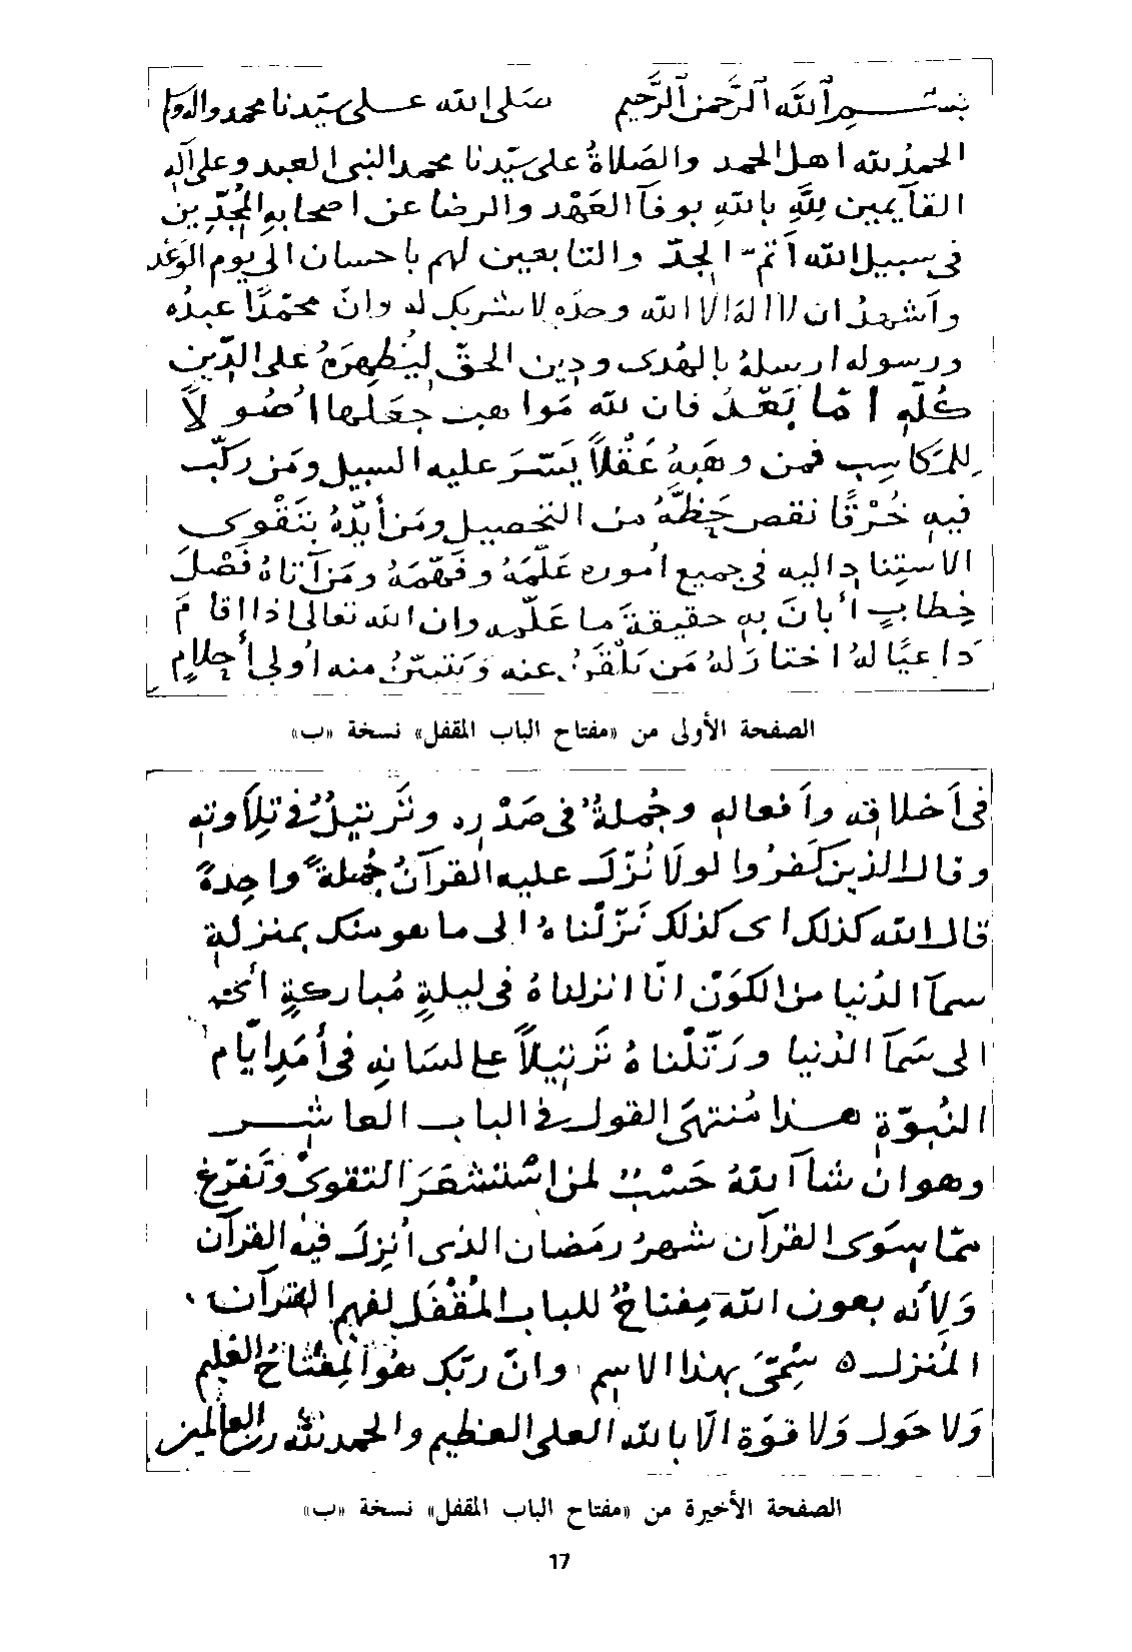 بسم ٱلله ٱلرَّحمن ٱلرَّحيم صَلى الله على سيّدنا محمد واله
الحمدُ لله اهل الحمد والصَلاةُ على سيّدنا محمد النبى العبد وعلى آله
القآيمين لِلَّهِ بالله بوفآ العَهْد والرضا عن اصحابه المُجدّين
فى سبيل الله أتمّ الجدّ والتابعين لهم باحسان الى يوم الوَعْد
وأشهدُ ان لا اله الا الله وحدَه لا شريك له وانّ محمّدًا عبدُه
ورسوله ارسلهُ بالهُدى ودِين الحقّ لِيُظهِرَهُ على الدّين
كُلّهِ امّا بَعْدُ فان لله مَواهب جعَلَها اُصُولاً
لِلمَكاسِب فمن وهَبهُ عَقْلاً يَسّرَ عليه السبيل ومَن ركّب
فيهِ خُرْقًا نقص حَظّهُ من التحصيل ومَن أيّدَهُ بتَقْوى
الاستِناد اليه فى جميع اموره عَلّمَهُ وفَهّمَهُ ومَن آتاهُ فَصْلَ
خِطابٍ أبانَ به حقيقةَ ما عَلّمه وان الله تعالى اذا اقامَ
دَاعيًا لهُ اختارَ لهُ مَن يَلْقَنُ عنه ويَتبيّنُ منه اُولى أحلامٍ
الصفحة الأولى من «مفتاح الباب المقفل» نسخة «ب»
فى أخلاقِه وأفعالهِ وجُملةٌ فى صَدْرِه وتَرتيلٌ فى تِلاَوتِهِ
وقال الذين كَفَرُوا لولَا نُزّل عليه القرآنُ جُملةً واحِدةً
قال الله كذلك اى كذلك نَزّلناهُ الى ما هو منك بمنزلةِ
سمآ الدُنيا من الكَوَن انّا انزلناهُ فى ليلةٍ مُباركةٍ
الى سَمآ الدُنيا ورَتّلْناهُ تَرتيلاً على لسَانِهِ فى أمَدِ ايّام
النُبوّة هذا مُنتهَى القول فى الباب العاشر
وهو ان شآ اللهُ حَسْبٌ لمن اسْتشعَرَ التقوى وتَفرّغ
ممّا سِوَى القرآن شهرُ رمَضان الذى اُنزِلَ فيه القرآن
وَلأنه بعون الله مِفتاحٌ للباب المُقْفَل لفهم القرآن
المُنزل ٥ سُمّىَ بهذا الاسِم وانّ ربّك هُو المِفتاحُ العَليم
وَلا حَول وَلا قوّة الّا بالله العلى العظيم والحمد لله رب العالمين
الصفحة الأخيرة من «مفتاح الباب المقفل» نسخة «ب»
17